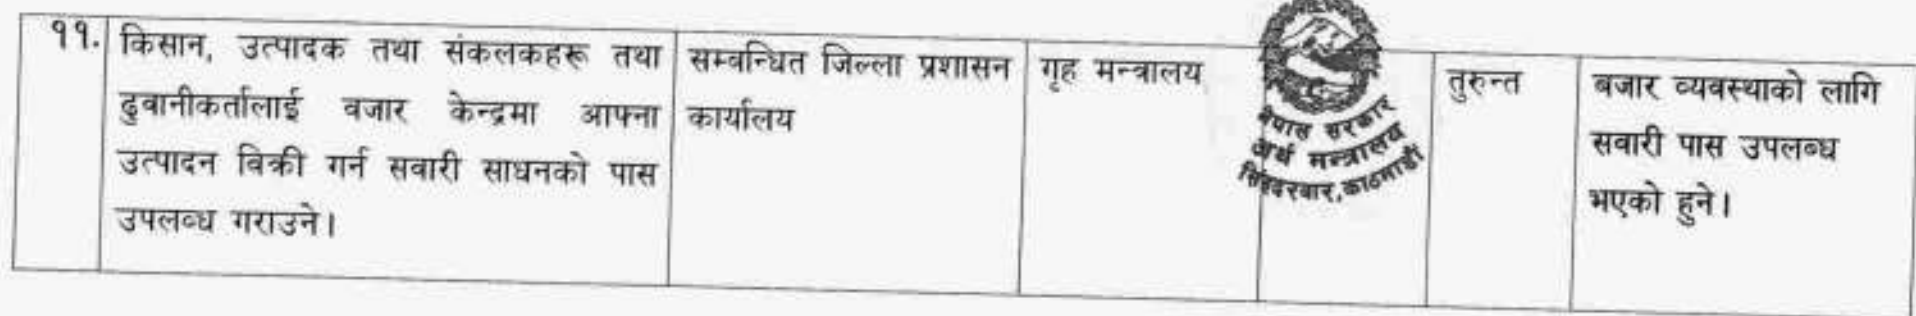 ११.
किसान, उत्पादक तथा संकलकहरू तथा
ढुवानीकर्तालाई बजार केन्द्रमा आफ्ना
उत्पादन बिक्री गर्न सवारी साधनको पास
उपलब्ध गराउने।
सम्बन्धित जिल्ला प्रशासन
कार्यालय
गृह मन्त्रालय
नेपाल सरकार
अर्थ मन्त्रालय
सिंहदरबार, काठमाडौं
तुरुन्त
बजार व्यवस्थाको लागि
सवारी पास उपलब्ध
भएको हुने।